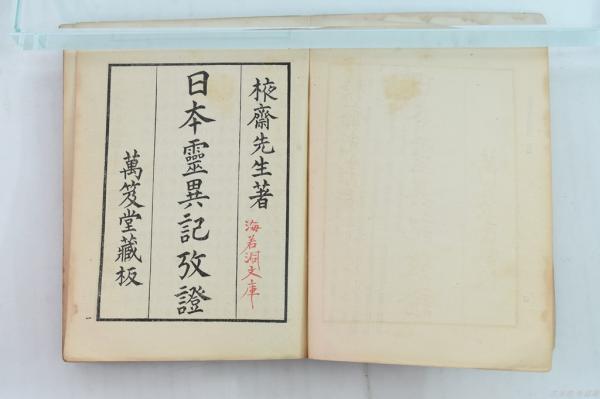 棭齋先生著
海若洞文庫
日本靈異記攷證
萬笈堂藏板